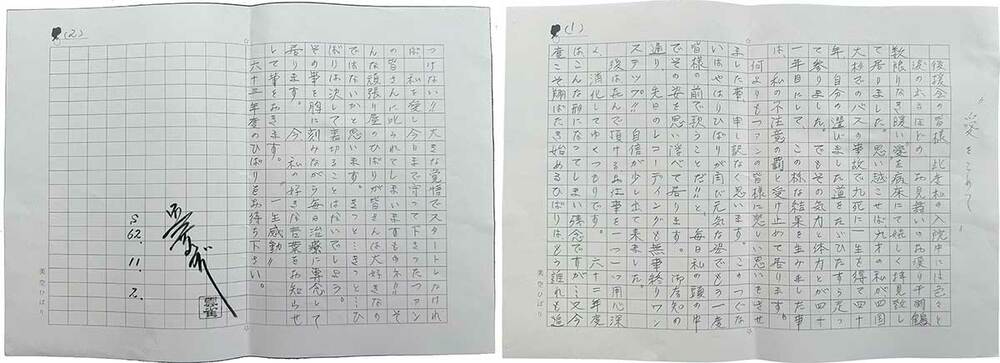 (1)
愛をこめて
後援会の皆様、此度私の入院中には色々と
涙の出るほどの　お見舞いのお便り、千羽鶴
数限りなき暖い愛を病床にて嬉しく拝見致し
て居りました。思い越こせば九才の私が四国
大杉でのバスの事故で九死に一生を得て四十
年　自分の選びました道をただひたすら走っ
て参りました。でもその気力と体力とが四十
一年目にして、この様な結果を生みました事
は、私の不注意の罰と受け止めて居ります。
何よりもファンの皆様に悲しい思いをさせ
ました事、申し訳なく思います。このつぐな
いはやはりひばりが再び元気な姿でもう一度
皆様の前で歌うことだ!!と、毎日私の頭の中
でその姿を思い浮べて居ります。　御存知の
通り、先日のレコーディングも無事終り、ワン
ステップ!!　自信が少し出て来ました。
後は  頂けるお仕事を一つ一つ用心深
く、消化してゆくつもりです。　六十二年度
はこんな形になってしまい残念ですが…又今
度こそ翔ばたき始めるひばりはもう誰れも追
美空ひばり
(2)
つけない!!　大きな覚悟でスタートしなけれ
ば　私を愛し今日まで守って下さったファン
の皆さんに叱られてしまいますものネ!!　そ
んな頑張り屋のひばりが皆さんは大好きなの
ではないかと思います。きっと…きっと…ひ
ばりは決して裏切ることはないでしょう。
その事を胸に刻みながら毎日治療に専念して
居ります。　今、私の好きな言葉をお知らせ
して筆をおきます。　"一生感動"
六十三年度のひばりをお待ち下さい。
S
62.
11.
2.
美空ひばり